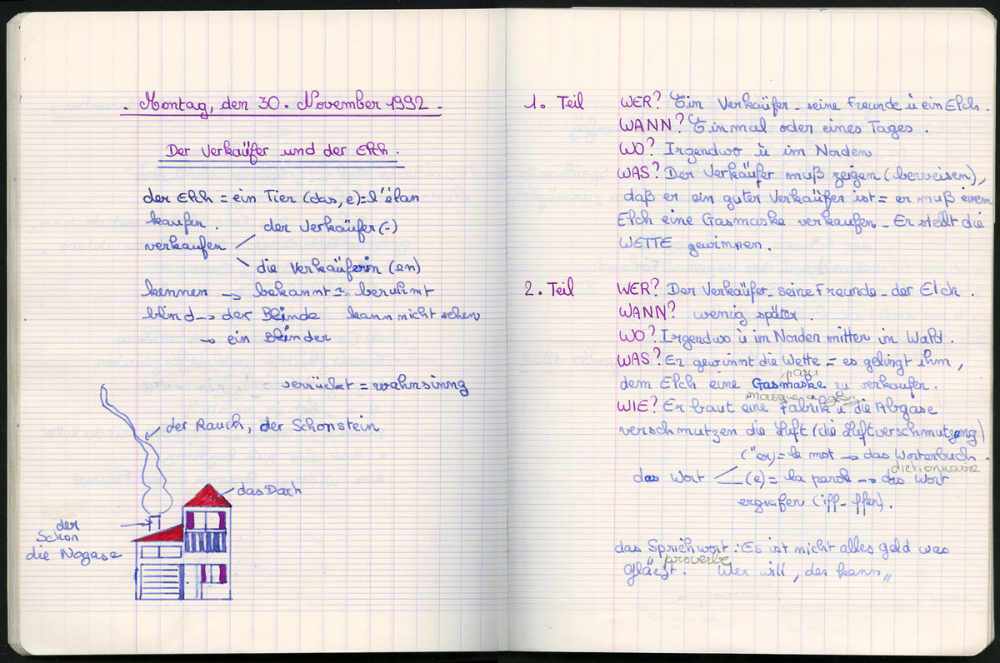 . Montag, den 30. November 1992.
Der Verkaüfer und der Elch.
der Elch = ein Tier (das, e) = l'élan
kaufen.
der Verkaüfer (-)
verkaufen
die Verkaüferin (en)
kennen → bekannt = beruhmt
blind → der Blinde kann nicht sehen
→ ein Blinder
verrückt = wahnsinng
der Rauch, der Schonstein
das Dach
der
Schon
die Nogase
1. Teil WER? Ein Verkaüfer - seine Freunde ü ein Elch.
WANN? Einmal oder eines Tages.
WO? Irgendwo ü im Norden
WAS? Der Verkaüfer muß zeigen (berweisen),
daß er ein guter Verkaüfer ist = er muß einem
Elch eine Gasmaske verkaufen - Er stellt die
WETTE gewinnen.
2. Teil WER? Der Verkaüfer - seine Freunde - der Elch.
WANN? wenig später.
WO? Irgendwo ü im Norden mitten in Wald.
WAS? Er gewinnt die Wette = es gelingt ihm,
dem Elch eine Gasmaske zu verkaufen.
masque à gaz
WIE? Er baut eine Fabrik ü die Abgase
verschmutzen die Luft (die Luftverschmutzung)
("er) = le mot → das Worterbuch.
dictionnaire
das Wort (e) = la parole → das Wort
ergrafen (iff - ffen).
das Sprichwort: Es ist nicht alles gold was
proverbe
glänzt. Wer will, der kann„